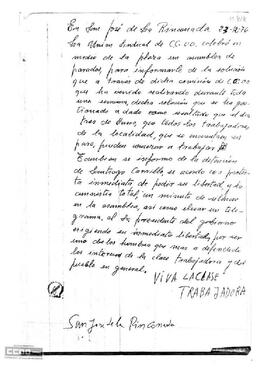 En San José de La Rinconada 23-12-76
La Unión Sindical de CC.OO, celebró en
medio de la plaza un asamblea de
parados, para informarle de la
que a través de dicha comisión de CC.OO
que ha venido realizando durante toda
una semana, dicha que se ha
a dado como resultado que el día
tres de Enero, que todos los trabajadores
de la localidad, que se encuentran en
paro, puedan comenzar a trabajar
Tambien se informo de la detención
de Santiago Carrillo, se acordó como protesta
inmediata, de pedir su libertad, y la
amnistía total, un minuto de silencio
en la asamblea, así como elevar un tele-
grama, al Sr presidente del gobierno
exigiendo su inmediata libertad, por ser
uno de los hombres que mas a defendido
los intereses de la clase trabajadora y del
pueblo en general.
VIVA LA CLASE
TRABAJADORA
San José de la Rinconada